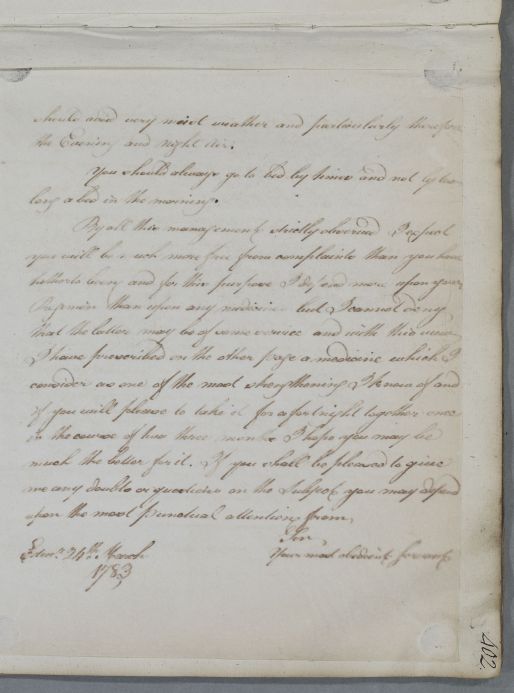 should avoid very moist weather and particularly therefore
the Evening and night Air.
You should always go to bed by times and not ly too
long a bed in the morning.
By all this management strictly observed I expect
you will be much more free from complaints than you have
hitherto been, and for this purpose I depend more upon your
Regimen than upon any medicine but I cannot deny
that the latter may be of some service and with this view
I have prescribed on the other page a medicine which I
consider as one of the most strengthening I know of and
if you will please to take it for a fortnight together once
in the course of two three months I hope you may be
much the better for it. If you shall be pleased to give
me any doubts or questions on the Subject you may depend
upon the most punctual attention from,
Sir,
Your most obedient Servant
Edinr. 24th. March
1783
402